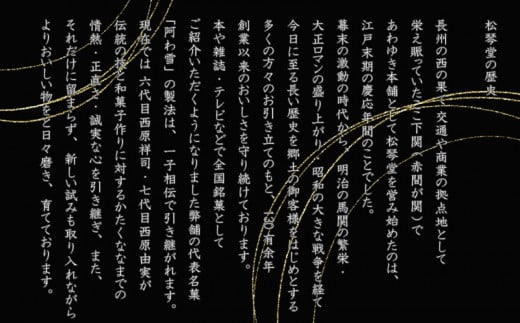 松琴堂の歴史
長州の西の果て交通や商業の拠点地として
栄え賑っていたここ下関（赤間が関）で
あわゆき本舗として松琴堂を営み始めたのは、
江戸末期の慶応年間のことでした。
幕末の激動の時代から、明治の馬関の繁栄・
大正ロマンの盛り上がり・昭和の大きな戦争を経て
今日に至る長い歴史を郷土の御客様をはじめとする
多くの方々のお引き立てのもと、一五〇有余年
創業以来のおいしさを守り続けております。
本や雑誌・テレビなどで全国銘菓として
ご紹介いただくようになりました弊舗の代表名菓
「阿わ雪」の製法は、一子相伝で引き継がれます。
現在では六代目西原祥司・七代目西原由実が
伝統の技と和菓子作りに対するかたくななまでの
情熱・正直さ・誠実な心を引き継ぎ、また、
それだけに留まらず、新しい試みも取り入れながら
よりおいしい物をと日々磨き、育てております。